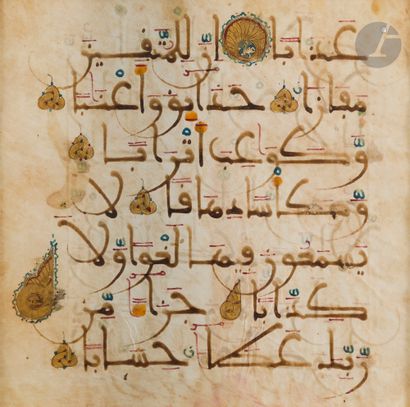 عذابا إن للمتقين
مفازا حدائق وأعنبا
وكواعب أترابا
وكأسا دهاقا لا
يسمعون فيها لغوا ولا
كذابا جزاء من
ربك عطاء حسابا